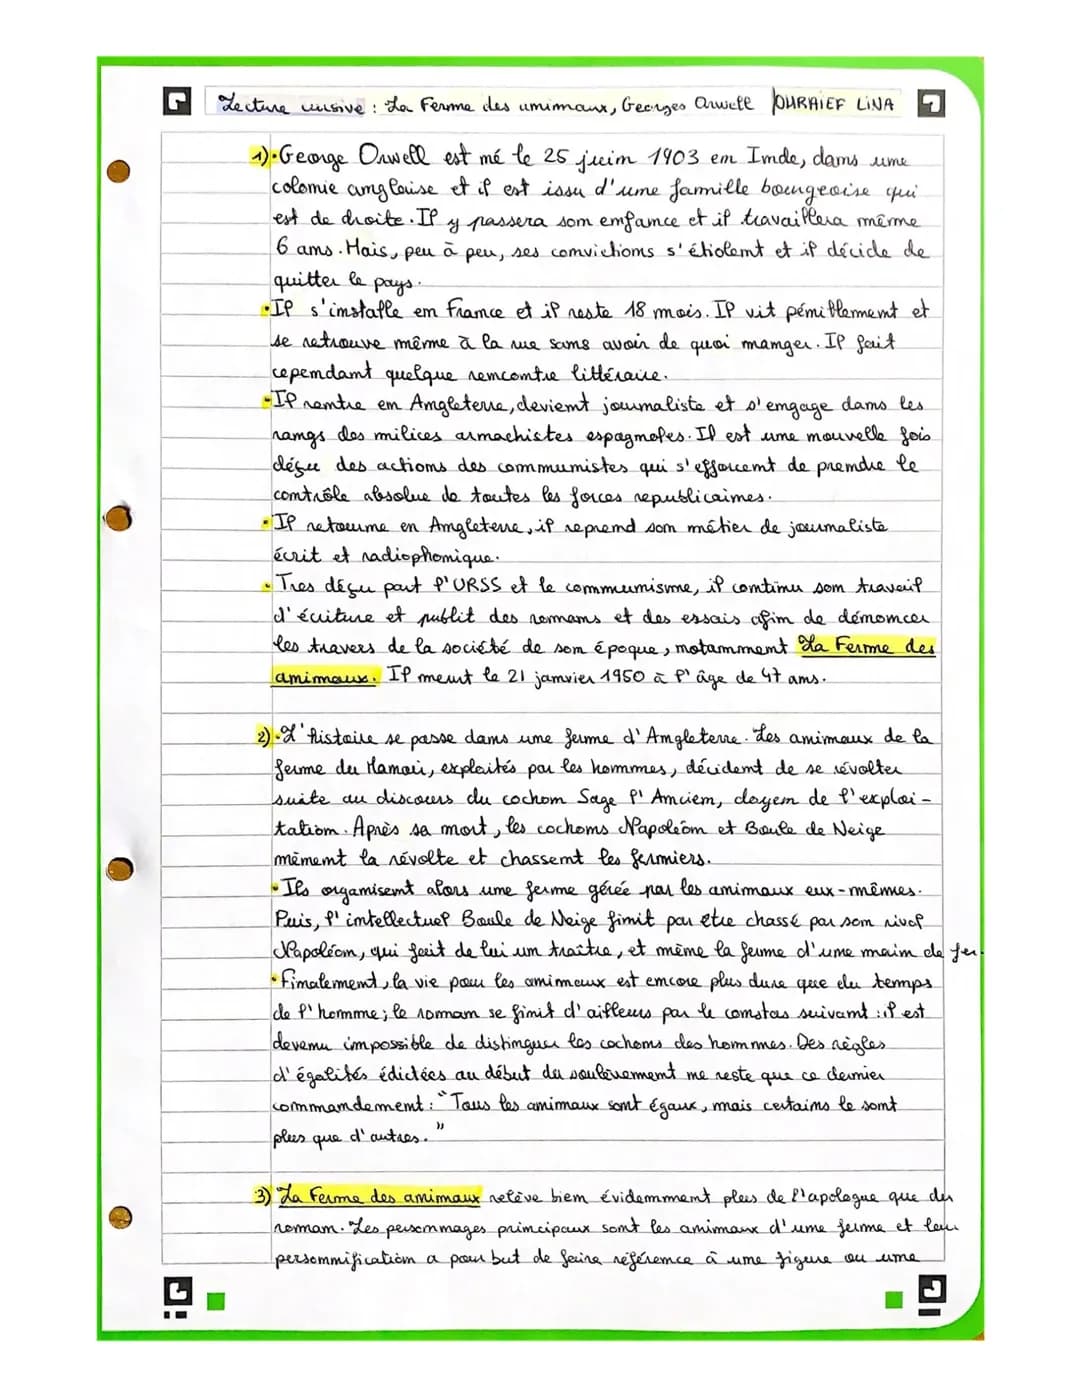 Lecture cursive : La Ferme des animaux, Georges Orwell OURAIEF LINA
1) • George Orwell est né le 25 juin 1903 en Inde, dans une
colonie anglaise et il est issu d'une famille bourgeoise qui
est de droite. Il y passera son enfance et il travaillera même
6 ans. Mais, peu à peu, ses convictions s'étiolent et il décide de
quitter le pays.
• Il s'installe en France et il reste 18 mois. Il vit péniblement et
se retrouve même à la rue sans avoir de quoi manger. Il fait
cependant quelque rencontre littéraire.
• Il rentre en Angleterre, devient journaliste et s'engage dans les
rangs des milices anarchistes espagnoles. Il est une nouvelle fois
déçu des actions des communistes qui s'efforcent de prendre le
contrôle absolue de toutes les forces republicaines.
• Il retourne en Angleterre, il reprend son métier de journaliste
écrit et radiophonique.
• Tres déçu part l'URSS et le communisme, il continu son travail
d'écriture et publit des romans et des essais afin de dénoncer
les travers de la société de son époque, notamment La Ferme des
animaux. Il meurt le 21 janvier 1950 à l'âge de 47 ans.
2) • L'histoire se passe dans une ferme d'Angleterre. Les animaux de la
ferme du Manoir, exploités par les hommes, décident de se révolter
suite au discours du cochon Sage l'Ancien, doyen de l'exploi-
tation. Après sa mort, les cochons Napoléon et Boule de Neige
mènent la révolte et chassent les fermiers.
• Ils organisent alors une ferme gérée par les animaux eux-mêmes.
Puis, l'intellectuel Boule de Neige finit par être chassé par son rival
Napoléon, qui fait de lui un traître, et mène la ferme d'une main de fer.
• Finalement, la vie pour les animaux est encore plus dure que du temps
de l'homme; le roman se finit d'ailleurs par le constas suivant : il est
devenu impossible de distinguer les cochons des hommes. Des règles
d'égalités édictées au début du soulèvement ne reste que ce dernier
commandement : "Tous les animaux sont égaux, mais certains le sont
plus que d'autres."
3) La Ferme des animaux relève bien évidemment plus de l'apologue que du
roman. Les personnages principaux sont les animaux d'une ferme et leur
personnification a pour but de faire référence à une figure ou une